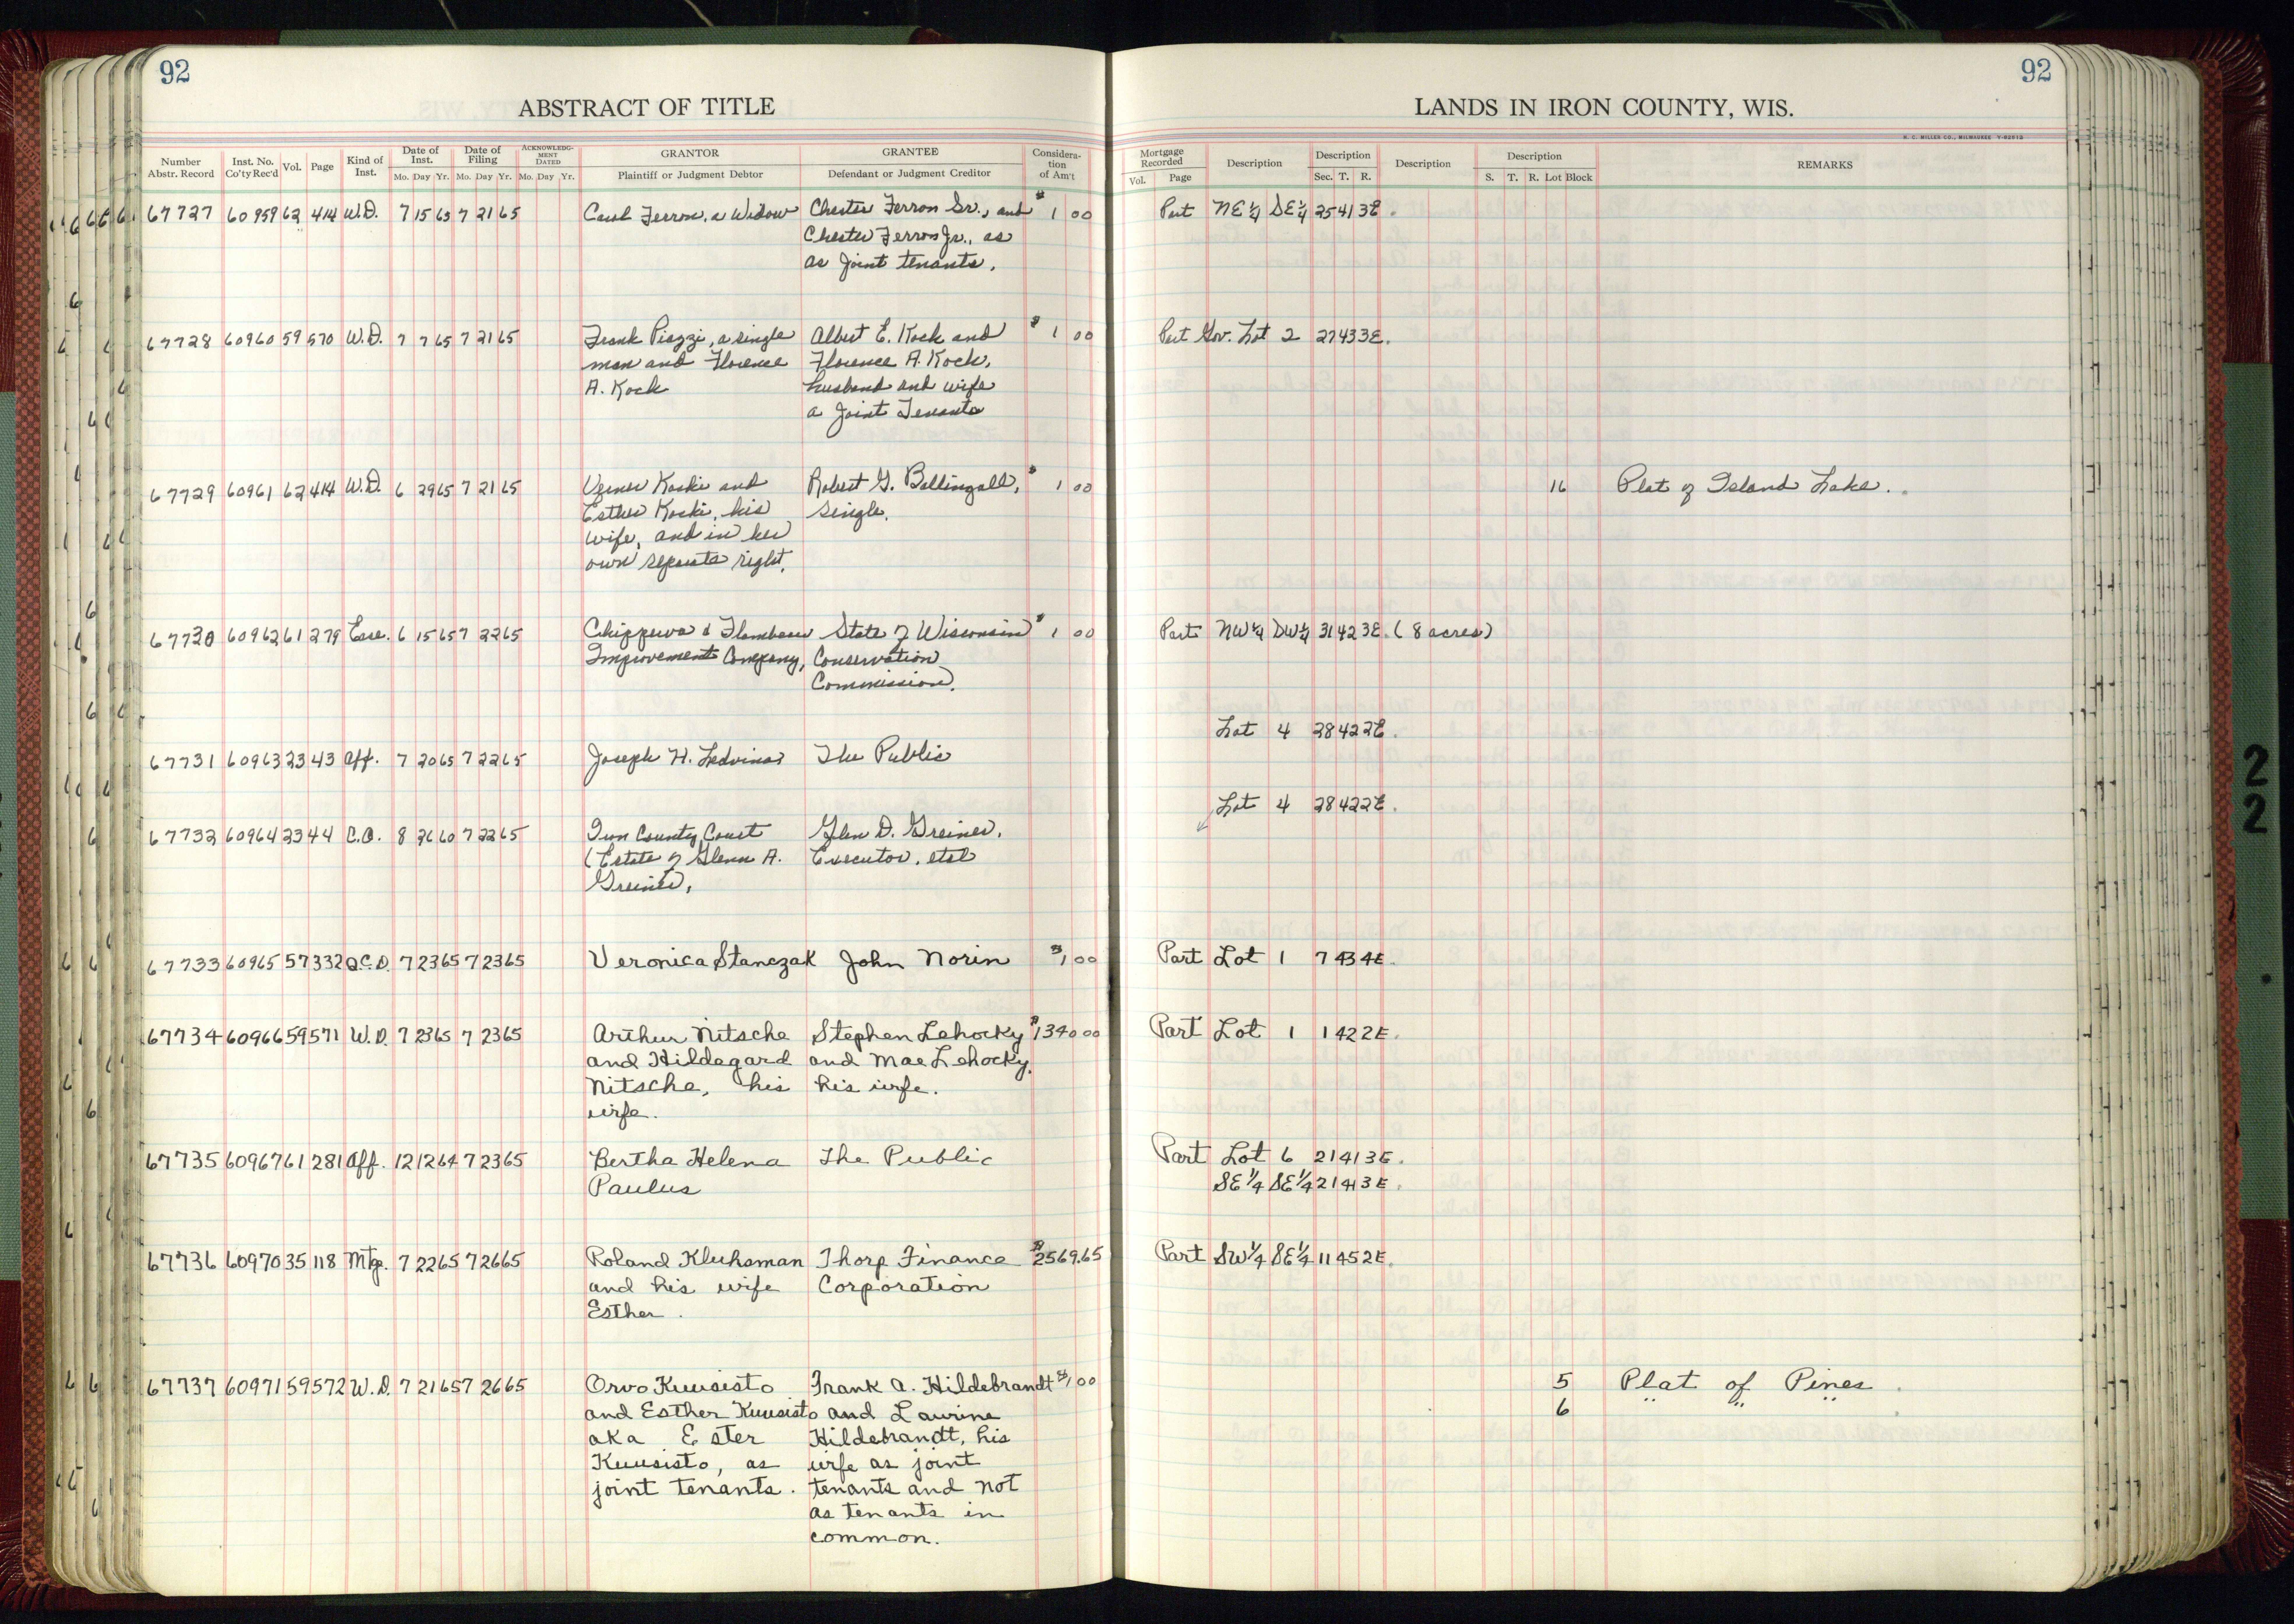 92
ABSTRACT OF TITLE
Number Abstr. Record Inst. No. Co'ty Rec'd Vol. Page Kind of Inst. Date of Inst. Mo. Day Yr. Date of Filing Mo. Day Yr. ACKNOWLEDG-MENT DATED Mo. Day Yr. GRANTOR Plaintiff or Judgment Debtor GRANTEE Defendant or Judgment Creditor Considera-tion of Am't
67727 60959 62 414 W.D. 7 15 65 7 21 65 Ferron, a Widow Chester Ferron Sr., and $1 00
Chester Ferron Jr., as
as joint tenants.
67728 60960 59 570 W.D. 7 7 65 7 21 65 Frank Piazzi, a single Albert E. Kock and $1 00
man and Florence Florence A. Kock,
A. Kock husband and wife
a Joint Tenants
67729 60961 62 414 W.D. 6 29 65 7 21 65 Verner Koski and Robert G. Bellingall, $1 00
Esther Koski, his single.
wife, and in her
own separate right.
67730 60962 61 279 Ease. 6 15 65 7 22 65 Chippewa & Flambeau State of Wisconsin $1 00
Improvement Company, Conservation
Commission.
67731 60963 23 43 Aff. 7 20 65 7 22 65 Joseph H. Ledvina The Public
67732 60964 23 44 C.O. 8 26 60 7 22 65 Iron County Court Glen D. Greiner,
(Estate of Glenn A. Executor, etal
Greiner,
67733 60965 57 332 Q.C.D. 7 23 65 7 23 65 Veronica Stanczak John Norin $1 00
67734 60966 59 571 W.D. 7 23 65 7 23 65 Arthur Nitsche Stephen Lehocky $1340 00
and Hildegard and Mae Lehocky,
Nitsche, his his wife.
wife.
67735 60967 61 281 Aff. 12 12 64 7 23 65 Bertha Helena The Public
Paulus
67736 60970 35 118 Mtg. 7 22 65 7 26 65 Roland Kluhsman Thorp Finance $2569.65
and his wife Corporation
Esther.
67737 60971 59 572 W.D. 7 21 65 7 26 65 Orvo Kuusisto Frank A. Hildebrandt $1 00
and Esther Kuusisto and Laurine
aka Ester Hildebrandt, his
Kuusisto, as wife as joint
joint tenants. tenants and not
as tenants in
common.
92
LANDS IN IRON COUNTY, WIS.
H. C. MILLER CO., MILWAUKEE Y-82813
Mortgage Recorded Vol. Page Description Description Sec. T. R. Description Description S. T. R. Lot Block REMARKS
Part NE¼ SE¼ 25 41 3E.
Part Gov. Lot 2 27 43 3E.
16 Plat of Island Lake.
Part NW¼ SW¼ 31 42 3E. (8 acres)
Lot 4 28 42 2E.
Lot 4 28 42 2E.
Part Lot 1 7 43 4E.
Part Lot 1 1 42 2E.
Part Lot 6 21 41 3E.
SE¼ SE¼ 21 41 3E.
Part SW¼ SE¼ 11 45 2E.
5 Plat of Pines
6
2
2